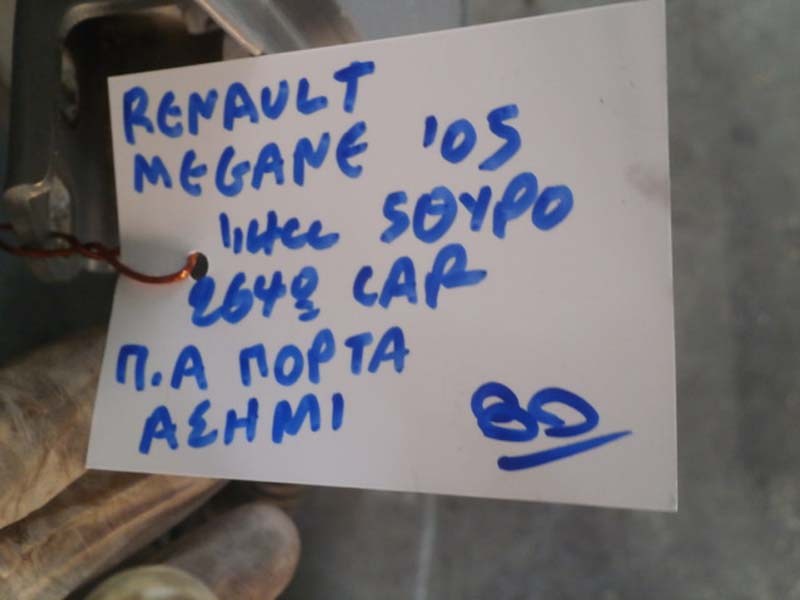 RENAULT
MEGANE '05
1,4cc 5ΘΥΡΟ
2642 CAR
Π.Α ΠΟΡΤΑ
ΑΣΗΜΙ
80